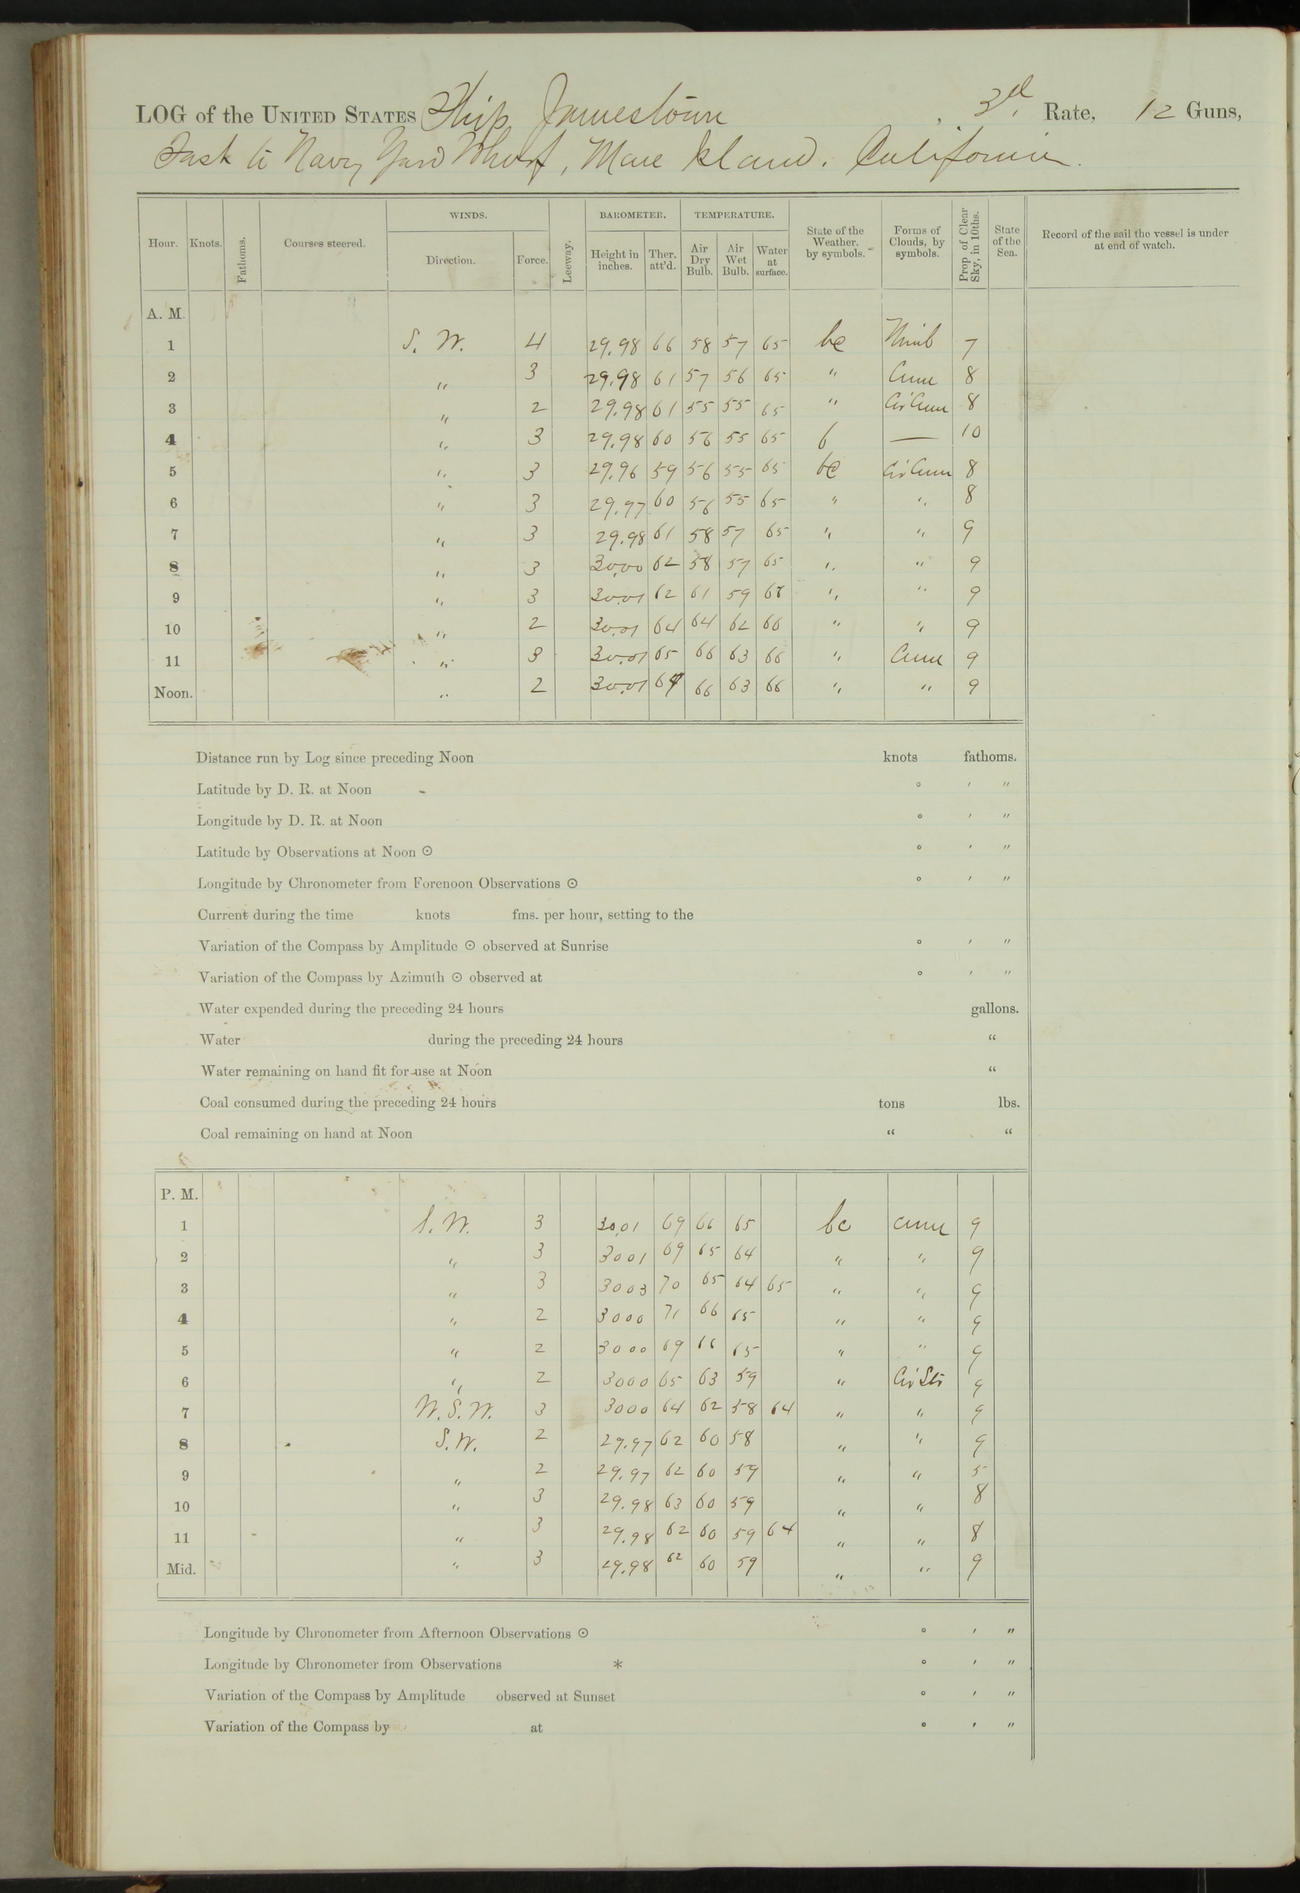 LOG of the UNITED STATES Ship Jamestown, 3d. Rate, 12 Guns,
Fast to Navy Yard Wharf, Mare Island. California.
Hour. Knots. Fathoms. Courses steered. WINDS. Direction. Force. Leeway. BAROMETER. Height in inches. Ther. att'd. TEMPERATURE. Air Dry Bulb. Air Wet Bulb. Water at surface. State of the Weather, by symbols. Forms of Clouds, by symbols. Prop of Clear Sky, in 10ths. State of the Sea. Record of the sail the vessel is under at end of watch.
A. M.
1 S. W. 4 29.98 66 58 57 65 bc Nimb 7
2 " 3 29.98 61 57 56 65 " Cum 8
3 " 2 29.98 61 55 55 65 " Cir Cum 8
4 " 3 29.98 60 56 55 65 b — 10
5 " 3 29.96 59 56 55 65 bc Cir Cum 8
6 " 3 29.97 60 56 55 65 " " 8
7 " 3 29.98 61 58 57 65 " " 9
8 " 3 30.00 62 58 57 65 " " 9
9 " 3 30.01 62 61 59 " " 9
10 " 2 30.01 64 64 62 66 " " 9
11 " 3 30.01 65 66 63 66 " Cum 9
Noon. " 2 30.01 64 66 63 66 " " 9
Distance run by Log since preceding Noon knots fathoms.
Latitude by D. R. at Noon ° ′ ″
Longitude by D. R. at Noon ° ′ ″
Latitude by Observations at Noon ☉ ° ′ ″
Longitude by Chronometer from Forenoon Observations ☉ ° ′ ″
Current during the time knots fms. per hour, setting to the
Variation of the Compass by Amplitude ☉ observed at Sunrise ° ′ ″
Variation of the Compass by Azimuth ☉ observed at ° ′ ″
Water expended during the preceding 24 hours gallons.
Water during the preceding 24 hours “
Water remaining on hand fit for use at Noon “
Coal consumed during the preceding 24 hours tons lbs.
Coal remaining on hand at Noon “ “
P. M.
1 S. W. 3 30.01 69 66 65 bc cum 9
2 " 3 3001 69 65 64 " " 9
3 " 3 3003 70 65 64 65 " " 9
4 " 2 3000 71 66 65 " " 9
5 " 2 3000 69 66 65 " " 9
6 " 2 3000 65 63 59 " Cir Str 9
7 W. S. W. 3 3000 64 62 58 64 " " 9
8 S. W. 2 29.97 62 60 58 " " 9
9 " 2 29.97 62 60 59 " " 5
10 " 3 29.98 63 60 59 " " 8
11 " 3 29.98 62 60 59 64 " " 8
Mid. " 3 29.98 62 60 59 " " 9
Longitude by Chronometer from Afternoon Observations ☉ ° ′ ″
Longitude by Chronometer from Observations * ° ′ ″
Variation of the Compass by Amplitude observed at Sunset ° ′ ″
Variation of the Compass by at ° ′ ″